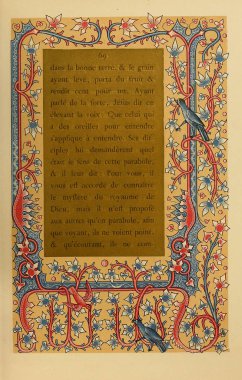 69
dans la bonne terre, & le grain
ayant levé, porta du fruit & 
rendit cent pour un. Ayant
parlé de la sorte, Jésus dit en
élevant la voix: Que celui qui
a des oreilles pour entendre
s'applique à entendre. Ses dis-
ciples lui demandèrent quel
était le sens de cette parabole,
& il leur dit: Pour vous, il
vous est accordé de connaître
le mystère du royaume de
Dieu, mais il n'est proposé
aux autres qu'en parabole, afin
que voyant, ils ne voient point,
& qu'écoutant, ils ne com-